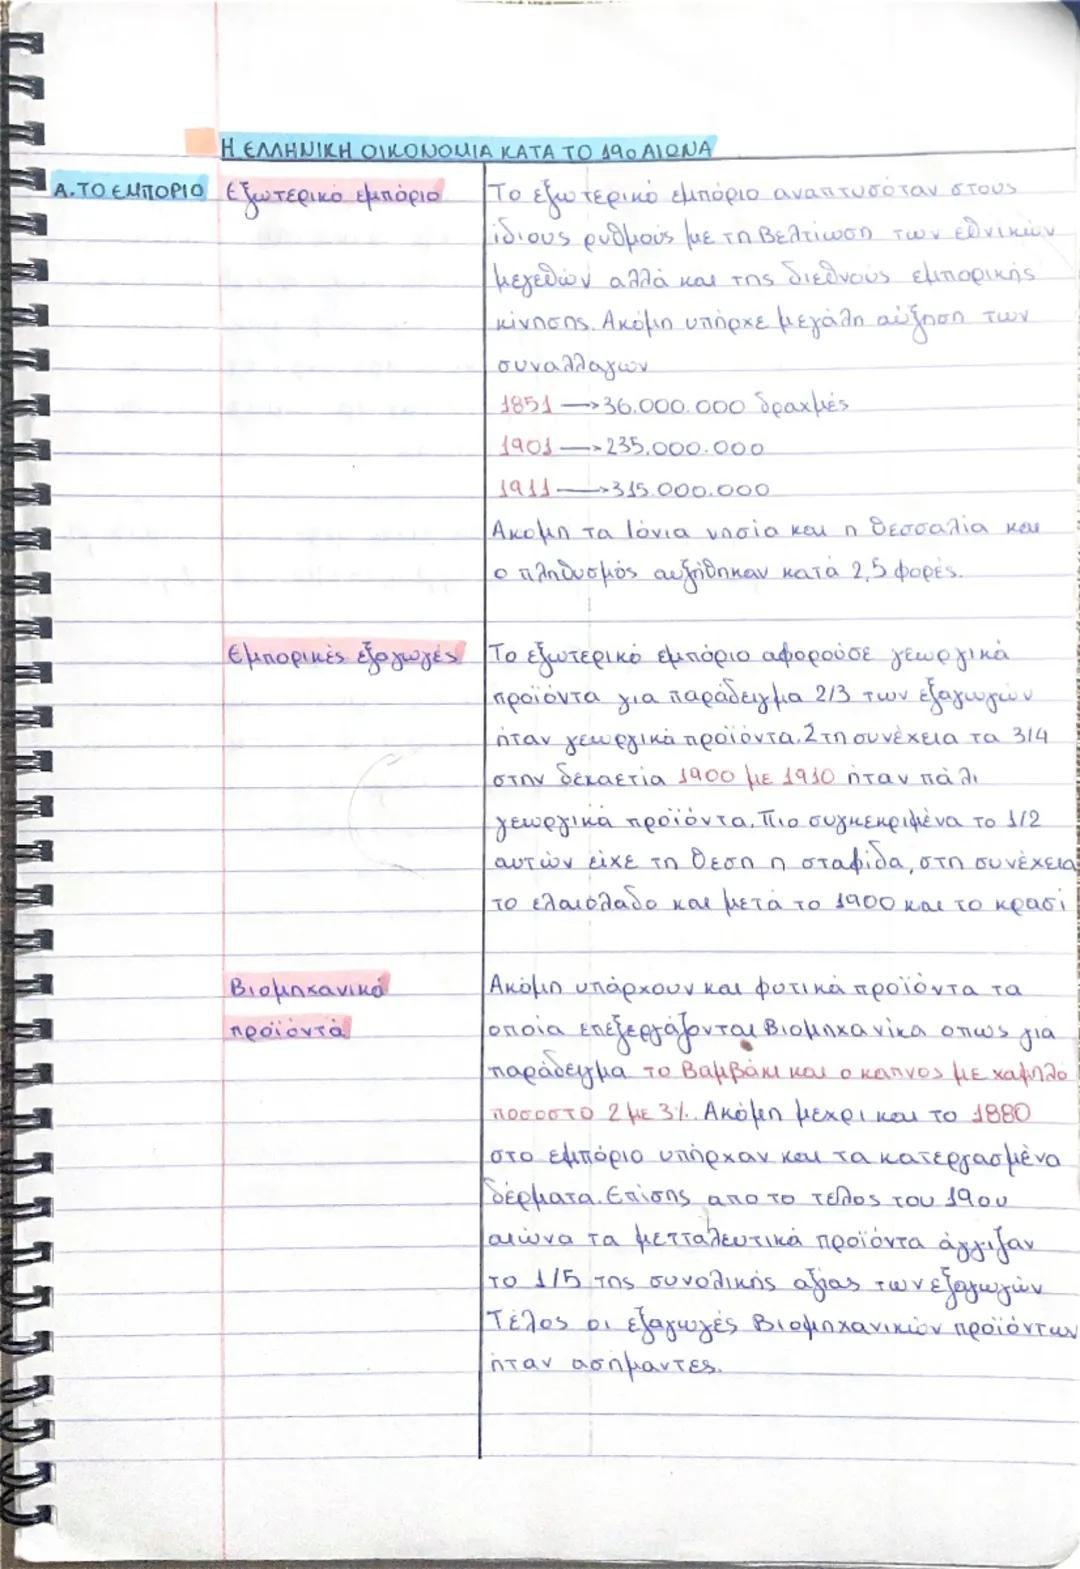 Η ΕΛΛΗΝΙΚΗ ΟΙΚΟΝΟΜΙΑ ΚΑΤΑ ΤΟ 19ο ΑΙΩΝΑ
Α. ΤΟ ΕΜΠΟΡΙΟ
Εξωτερικό εμπόριο
Το εξωτερικό εμπόριο αναπτυσόταν στους
ίδιους ρυθμούς με τη βελτίωση των εθνικών
μεγεθών αλλά και της διεθνούς εμπορικής
κίνησης. Ακόμη υπήρχε μεγάλη αύξηση των
συναλλαγων
1851 —> 36.000.000 δραχμές
1901 —> 235.000.000
1911 —> 315.000.000
Ακομη τα Ιόνια νησία και η Θεσσαλία και
ο πληθυσμός αυξήθηκαν κατά 2,5 φορές.
Εμπορικές εξαγωγές
Το εξωτερικό εμπόριο αφορούσε γεωργικά
προϊόντα για παράδειγμα 2/3 των εξαγωγών
ήταν γεωργικά προϊόντα. Στη συνέχεια τα 3/4
στην δεκαετία 1900 με 1910 ήταν πάλι
γεωργικά προϊόντα. Πιο συγκεκριμένα το 1/2
αυτών είχε τη θεση η σταφίδα, στη συνέχεια
το ελαιόλαδο και μετά το 1900 και το κρασί
Βιομηχανικά
προϊόντα
Ακόμη υπάρχουν και φυτικά προϊόντα τα
οποία επεξεργάζονται βιομηχανικα οπως για
παράδειγμα το βαμβάκι και ο καπνος με χαμηλο
ποσοστο 2 με 3%. Ακόμη μεχρι και το 1880
στο εμπόριο υπήρχαν και τα κατεργασμένα
δέρματα. Επίσης απο το τέλος του 19ου
αιώνα τα μετταλευτικά προϊόντα άγγιζαν
το 1/5 της συνολικής αξίας των εξαγωγών
Τέλος οι εξαγωγές βιομηχανικών προϊόντων
ήταν ασήμαντες.